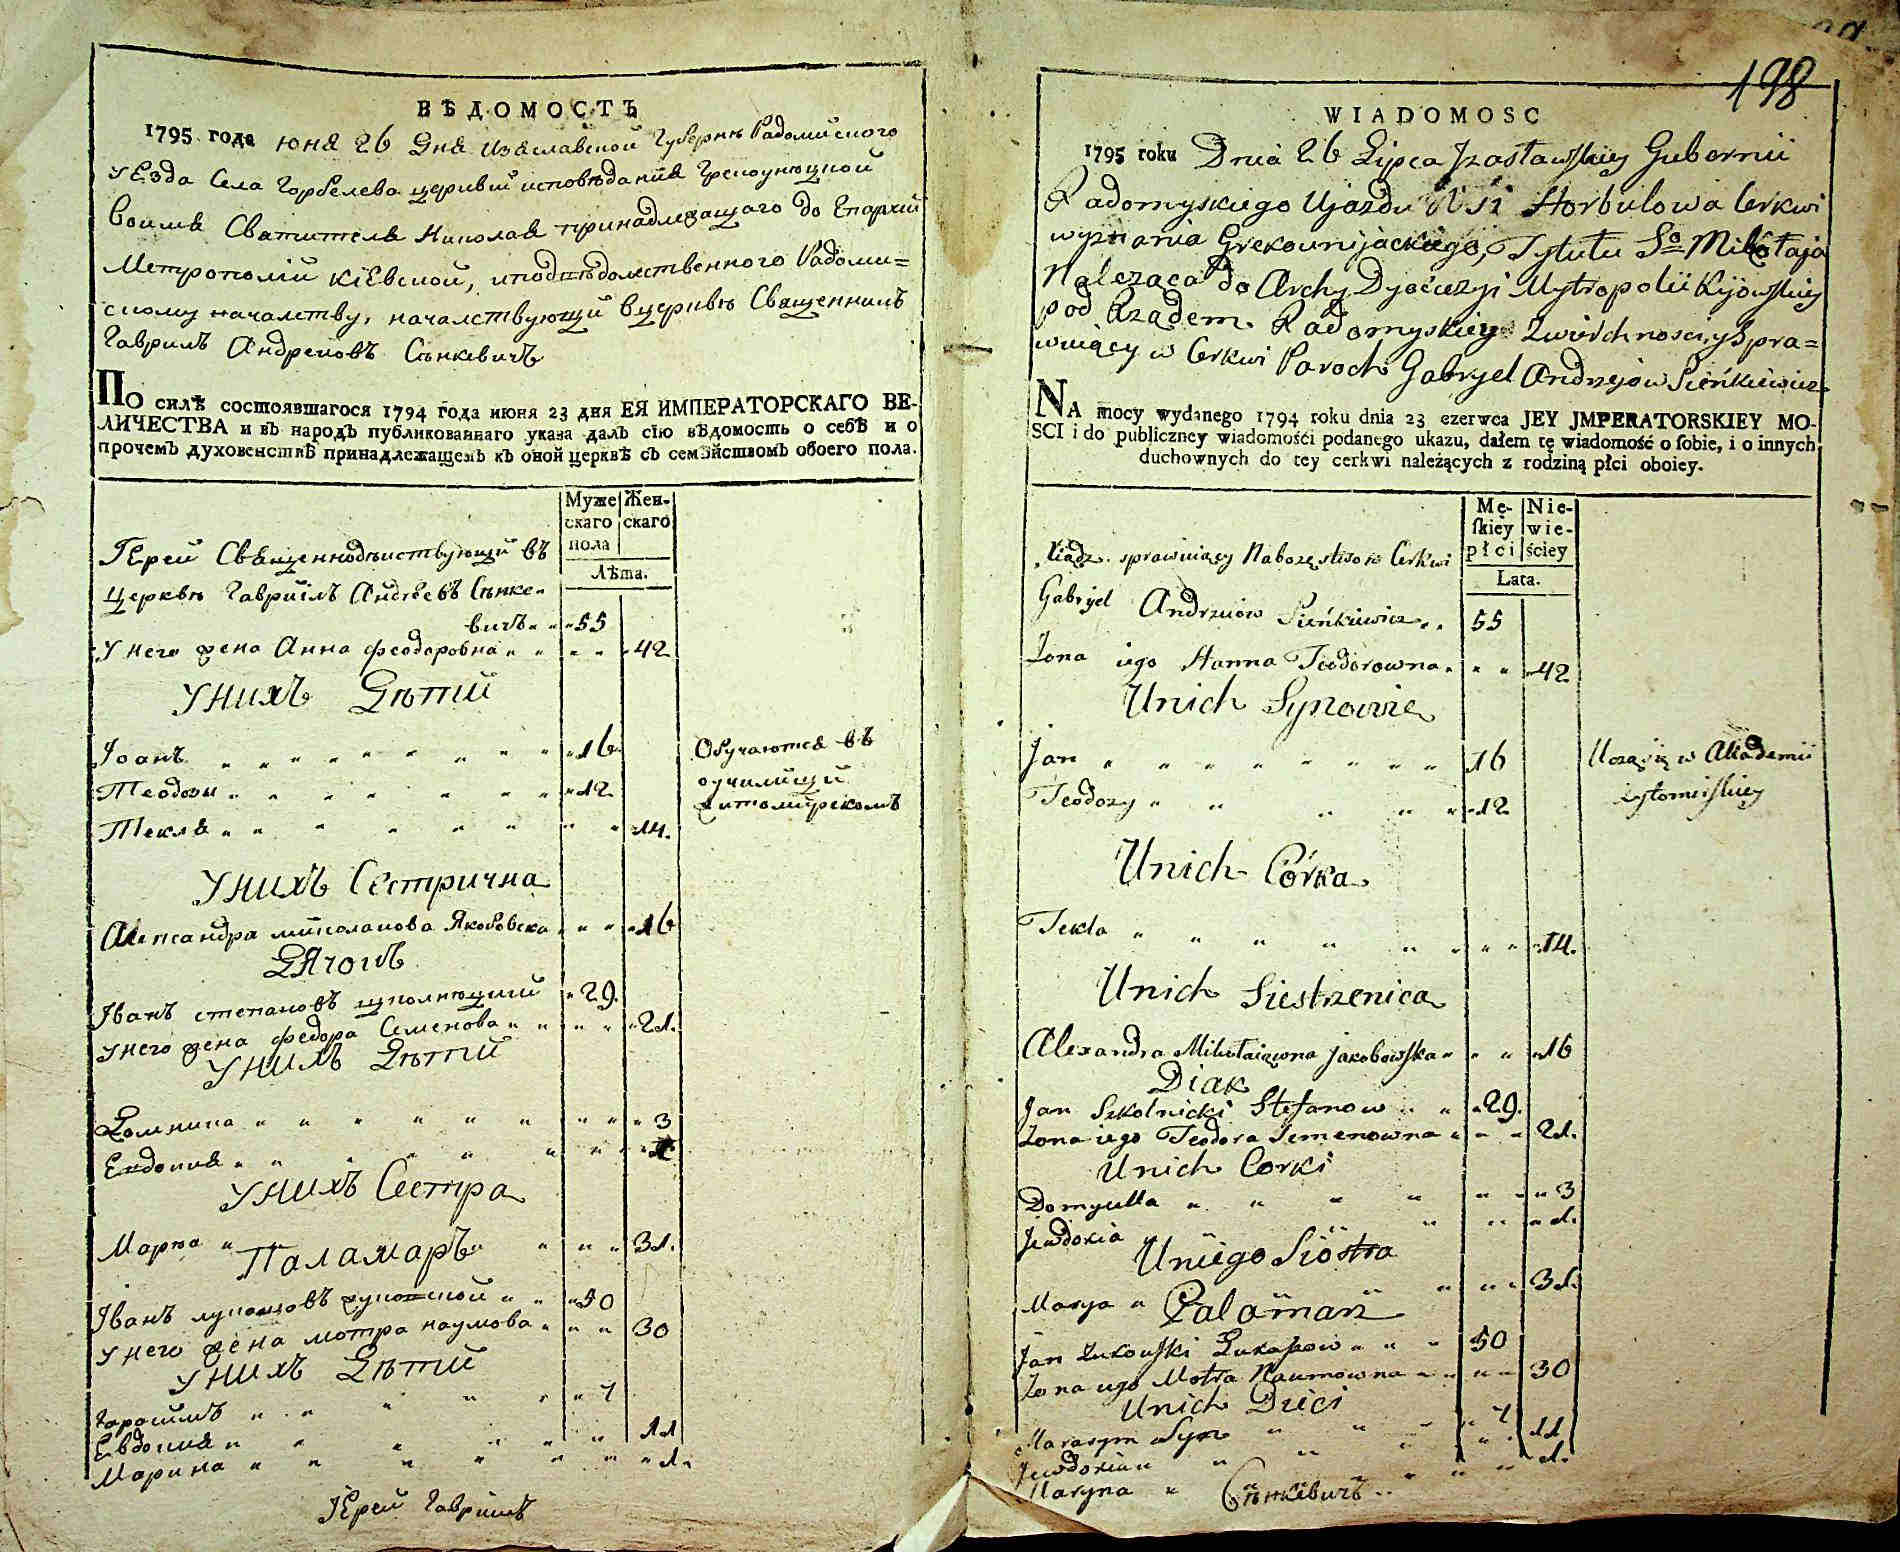 ВѢДОМОСТЬ
1795 года юня 26 дня Изяславской Губерни Радомиского
уезда Села Горбелева церквы исповѣданія Грекоунюцкой
Воимя Святителя Николая принадлежащаго до Епархіи
Метрополіи Кіевской, иподвѣдомственного Радоми=
скому началству, началствующи вцерквѣ Священникъ
Гаврилъ Андреювъ Сѣнкевичъ
По силѣ состоявшагося 1794 года июня 23 дня ЕЯ ИМПЕРАТОРСКАГО ВЕ-
ЛИЧЕСТВА и въ народъ публикованнаго указа далъ сію вѣдомость о себѣ и о
прочемъ духовенствѣ принадлежащемъ къ оной церквѣ съ семэйствомъ обоего пола.
Муже Жен-
скаго скаго
пола
Лѣта.
Іерей Священнодѣиствующій въ
Церквѣ Гавріилъ Андреевъ Сѣнке-
вичъ 55
У него жена Анна Феодоровна 42
Унихъ Дѣтій
Іоанъ 16 Обучаются въ
Теодозы 12 училищи
Житомирскомъ
Текля 14.
Унихъ Сестрична
Александра миколаиова Якобовска 16
Дячокъ
Іванъ степановъ школницкий 29.
Унего жена федора Семенова 21.
Унихъ Дѣтій
Домникиа 3
Евдокия 1
Унихъ Сестра
Маръя 31.
Паламаръ
Іванъ лукашовъ жуковской 50
У него жена мотра наумова 30
Унихъ Дѣтій
Гарасимъ 7
Евдокия 11
Марина 1.
Іерей Гавріилъ
198
WIADOMOSC
1795 roku Dnia 26 Lipca Izasławskiey Gubernii
Radomyskiego Ujazdu Wsi Horbulowa Cerkwi
wyznania Grekounijackiego, Tytułu So Mikołaja
Należąca do Archy Dyecezyi Mytropolii Kijowskiey
pod Rządem Radomyskiey Zwierchnosci, y Spra=
wuiący w Cerkwi Paroch Gabryel Andrzejow Sieńkiewicz
NA mocy wydanego 1794 roku dnia 23 czerwca JEY JMPERATORSKIEY MO-
SCI i do publiczney wiadomości podanego ukazu, dałem tę wiadomość o sobie, i o innych
duchownych do tey cerkwi należących z rodziną płci oboiey.
Mę- Nie-
skiéy wie-
płci ściey
Lata.
Xiądz sprawuiący Nabozęstwo w Cerkwi
Gabryel Andrzeiow Sieńkiewicz 55
Zona iego Hanna Teodorowna 42
Unich Synowie
Jan 16 Uczą się w Akademii
Teodozy 12 Zytomirskiey
Unich Córka
Tekla 14.
Unich Siestrzenica
Alexandra Mikołaiewna Jakobowska 16
Diak
Jan Szkolnicki Stefanow 29.
Zona iego Teodora Semenowna 21.
Unich Corki
Domycella 3
Jewdokia 1.
Uniego Siostra
Marya 31.
Palamarz
Jan Zukowski Lukaszow 50
Zona iego Motra Naumowna 30
Unich Dzieci
Harasym Syn 7
Jewdokia 11
Maryna 1.
Сѣнкевичъ